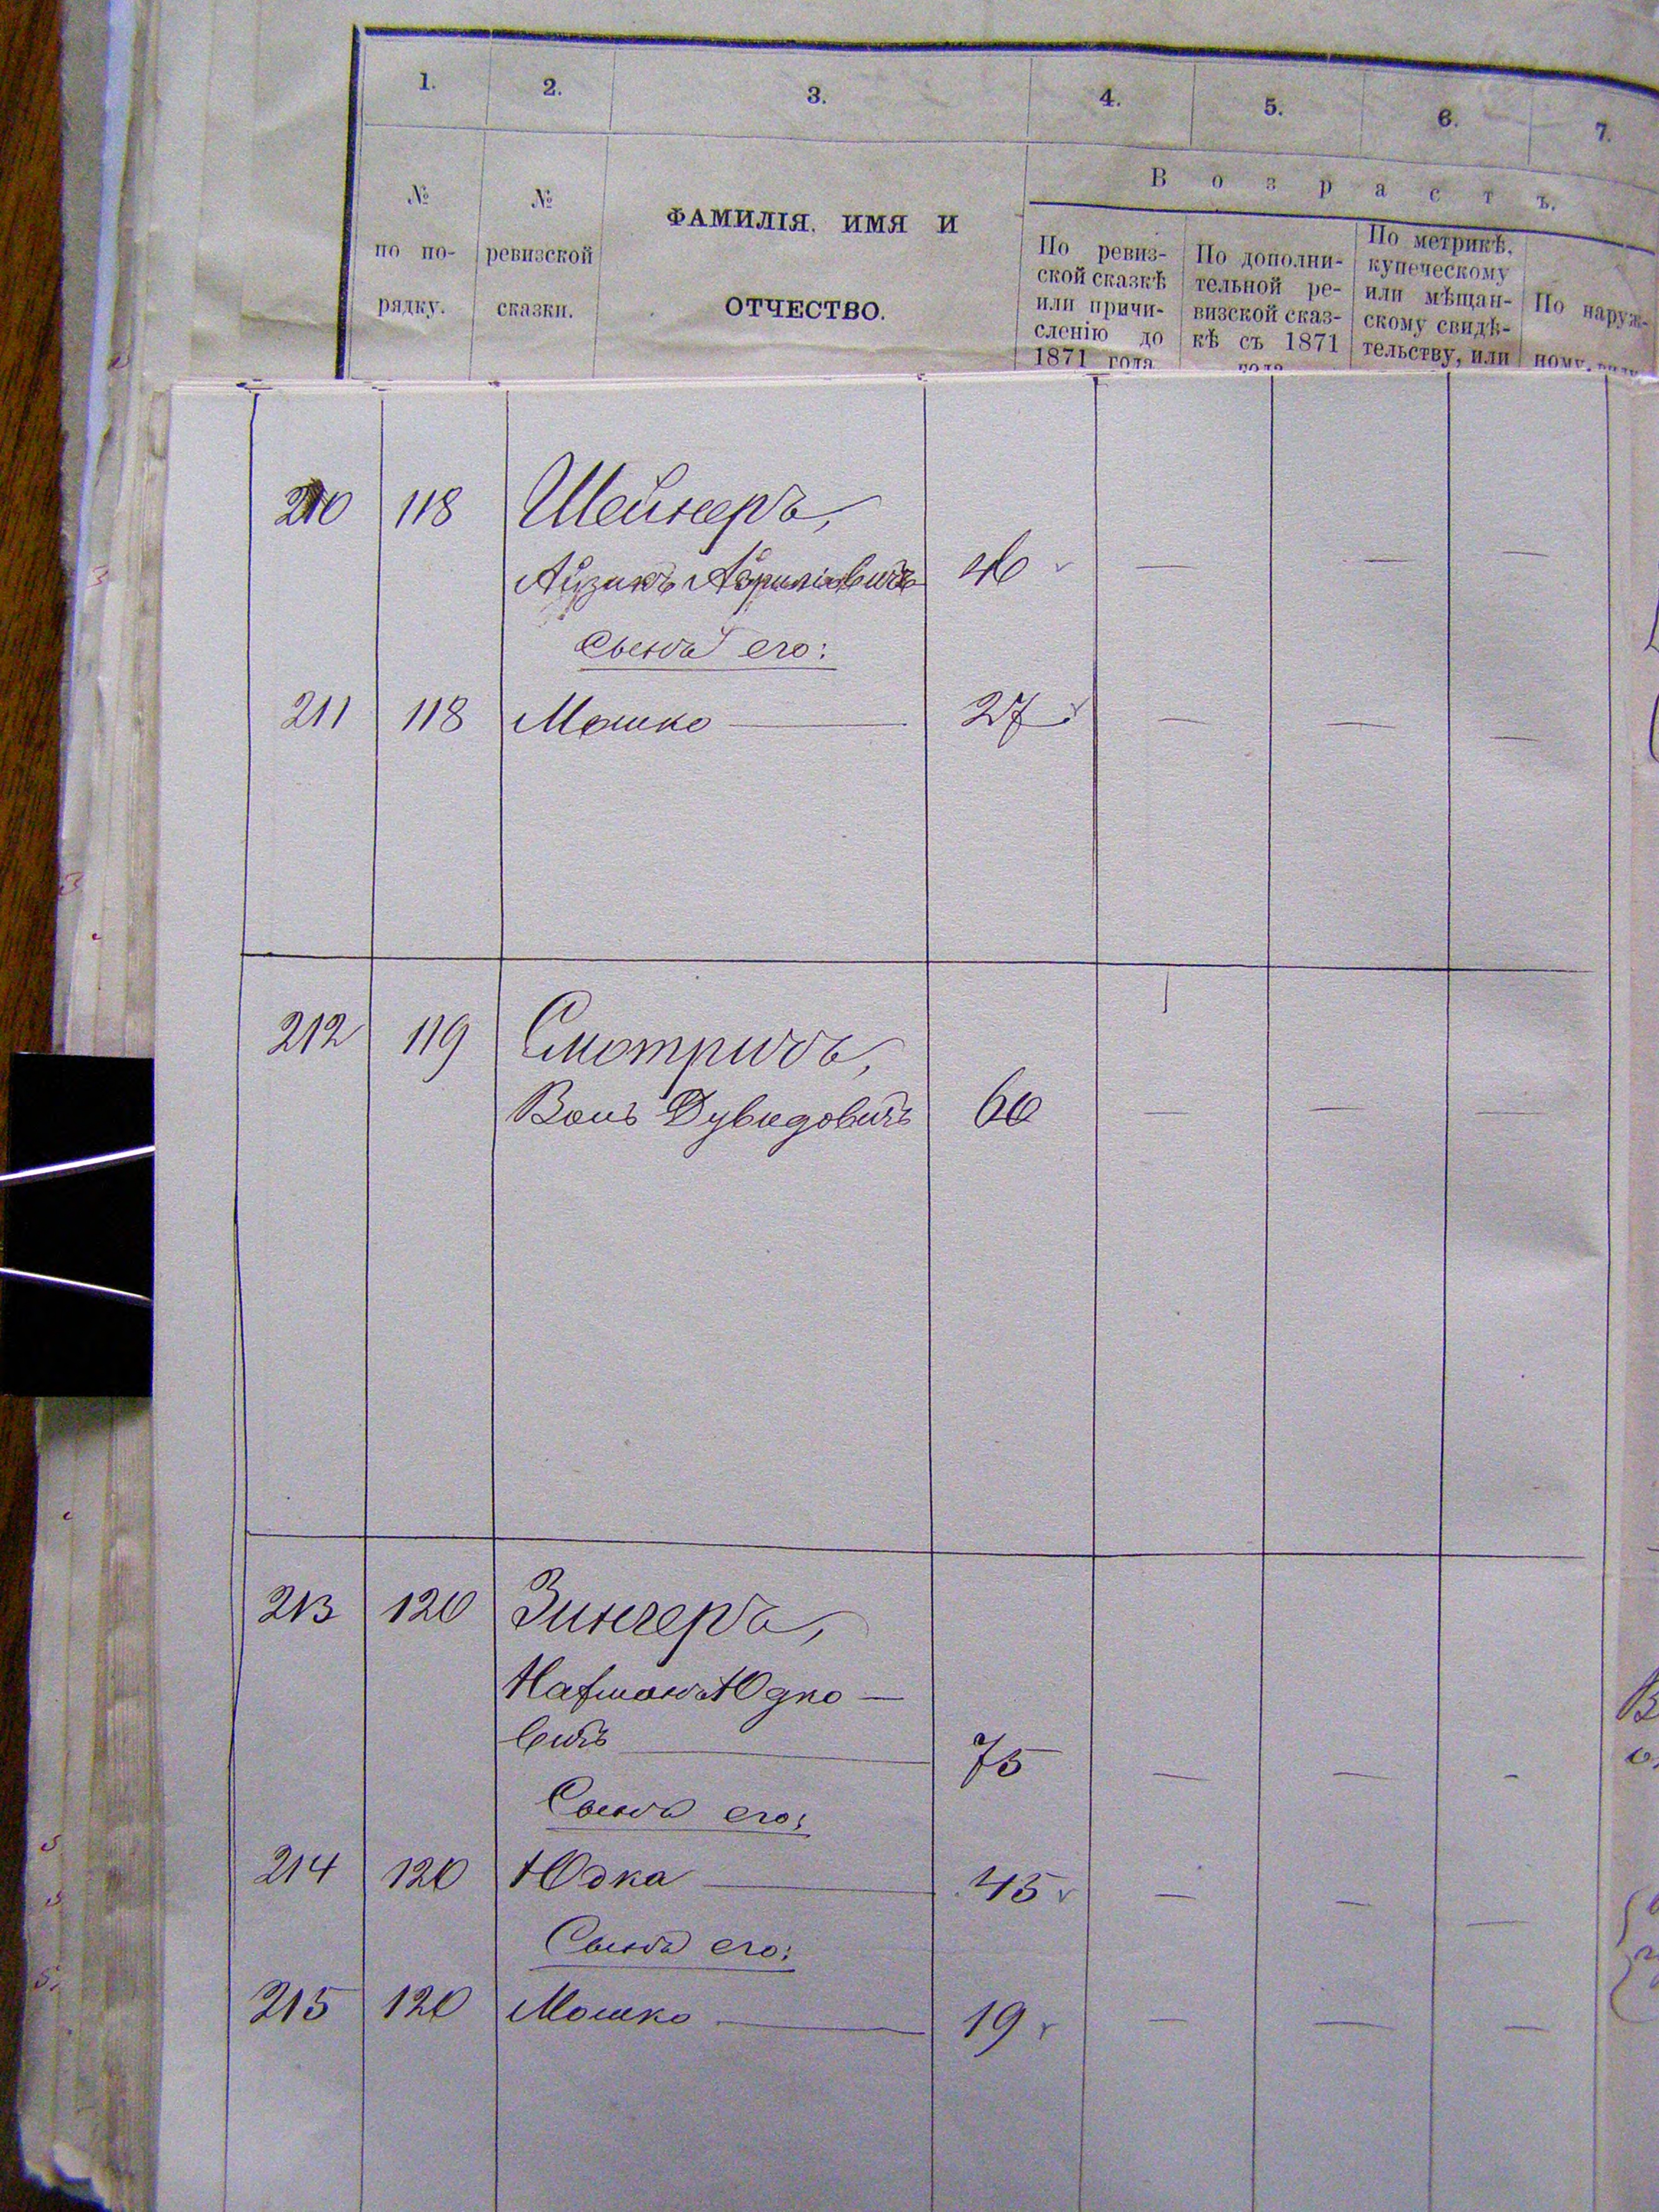 1. 2. 3. 4. 5. 6. 7.
Возрастъ.
№ по по-рядку.
№ ревизской сказки.
ФАМИЛІЯ, ИМЯ И
ОТЧЕСТВО.
По ревиз-
ской сказкѣ
или причи-
сленію до
1871 года
По дополни-
тельной ре-
визской сказ-
кѣ съ 1871
года
По метрикѣ,
купеческому
или мѣщан-
скому свидѣ-
тельству, или
По наруж-
ному виду
210 118 Шейнеръ,
Айзикъ 46 — — —
Сынъ его:
211 118 Мошко — 27 — — —
212 119 Смотричъ,
Волъ Дувидовичъ 60 — — —
213 120 Зингеръ,
Нахманъ Юдко—
вичъ — 75 — — -
Сынъ его:
214 120 Юдка — 45 — — —
Сынъ его:
215 120 Мошко — 19 — — —